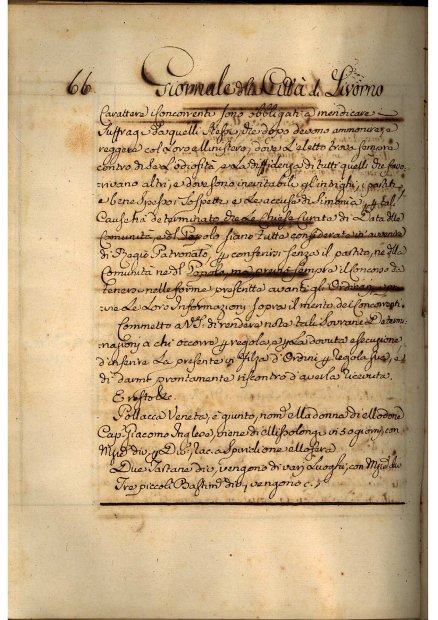 66 Giornale della Città di Livorno
Carattere i Concorrenti sono obbligati a mendicare i
Suffragi da quelli stessi, che dopo devono ammonire, e
reggere col Loro Ministero, dove L'eletto trova sempre
contro di se L'odiosità, e La diffidenza di tutti quelli che favo
rivano altri, e dove sono inevitabili gl'intrighi, i partiti
e bene spesso i Sospetti, e Le accuse di Simonia, p tal
Causa hà determinato che Le Chiese Curate di Data delle
Comunità, e del Popolo siano tutte considerate in avvenire
di Regio Patronato, p conferirsi senza il partito, ne della
Comunità ne del Popolo, ma previo sempre il Concorso da
tenersi nelle forme prescritte avanti gli Ordinari
Le Loro Informazioni sopra il merito dei Concorrenti.
Commetto a VS. di rendere nota tale Sovrana Determi
nazione a chi occorre p regola, e p La dovuta esecuzione
d'inserire La presente in Filza d'Ordini p Regola sua, e
di darmi prontamente riscontro d'averla ricevuta.
E resto &c.
Pollacca Veneta, è giunto, nom.
Cap. Giacomo Inglese, viene di Missolongi in 50 giorni, con
Due Tartane div. vengono di vari Luoghi, con
Tre piccoli Bastim. div. vengono c. s.